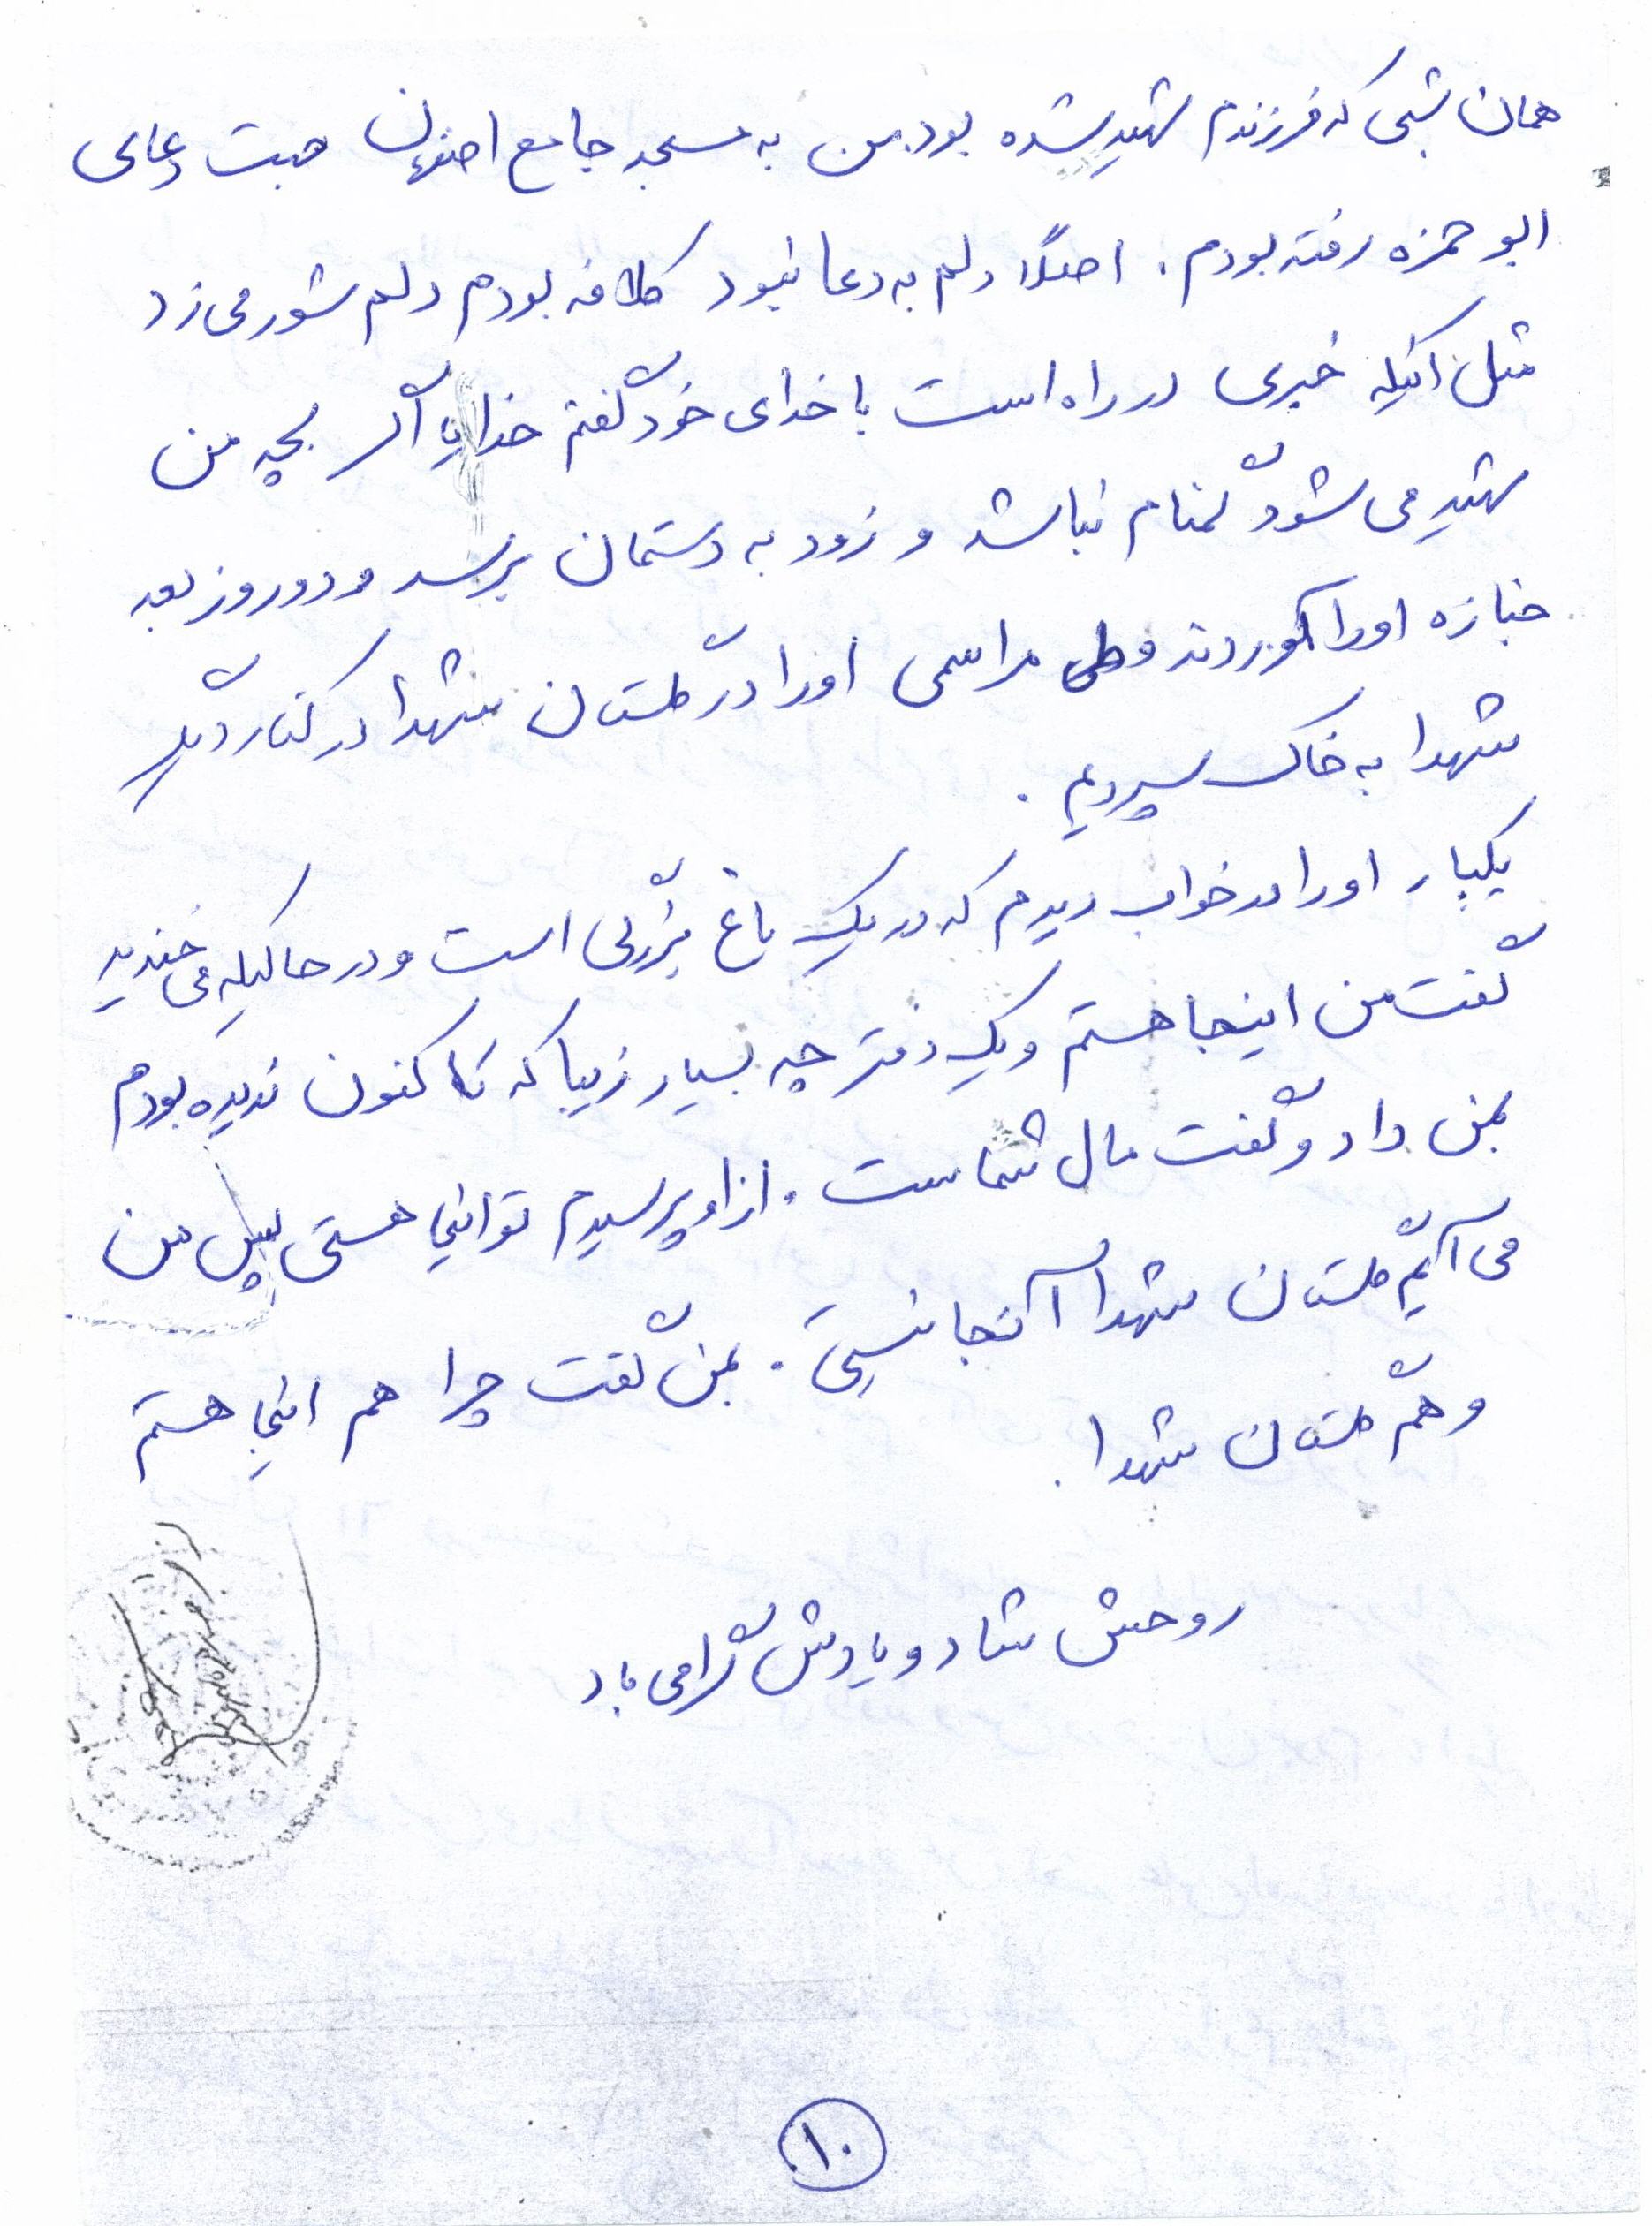 همان شبی که فرزندم شهید شده بود من به مسجد جامع اصفهان جهت دعای
ابوحمزه رفته بودم . اصلاً دلم به دعا نبود کلافه بودم دلم شور می زد
مثل اینکه خبری در راه است با خدای خود گفتم خدایا اگر بچه من
شهید می شود گمنام نباشد و زود به دستمان برسد و دو روز بعد
جنازه او را آوردند و طی مراسمی او را در گلستان شهدا در کنار دیگر
شهدا به خاک سپردیم .
یکبار او را در خواب دیدم که در یک باغ بزرگی است و در حالیکه می خندید
گفت من اینجا هستم و یک دفترچه بسیار زیبا که تا کنون ندیده بودم
بمن داد و گفت مال شماست . از او پرسیدم تو اینجا هستی پس من
می آیم گلستان شهدا آنجا نیستی . بمن گفت چرا هم اینجا هستم
و هم گلستان شهدا .
روحش شاد و یادش گرامی باد
۱۰